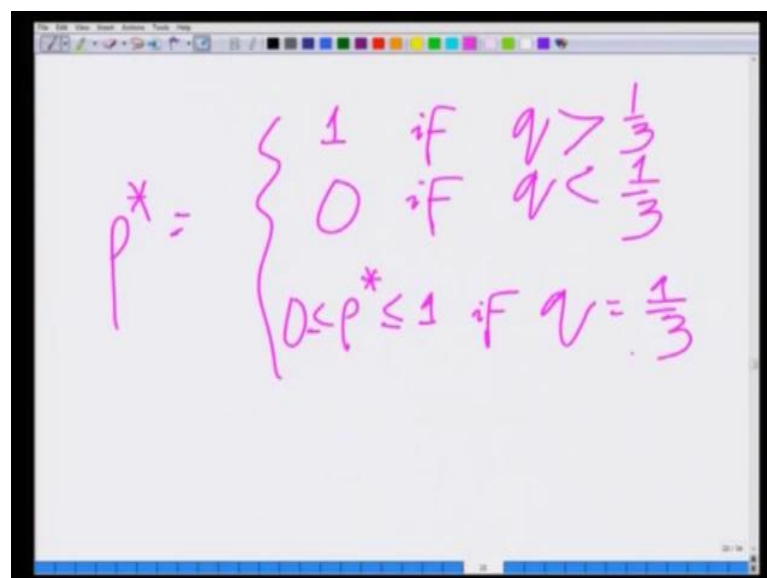 File Edit View Insert Actions Tools Help
p* = { 1 if q > 1/3
0 if q < 1/3
0 ≤ p* ≤ 1 if q = 1/3